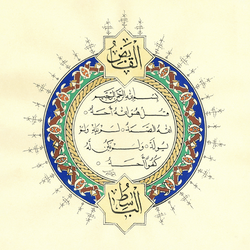 القابض
بسم الله الرحمن الرحيم
قل هو الله أحد
الله الصمد لم يلد ولم
يولد ولم يكن له
كفوا أحد
الباسط